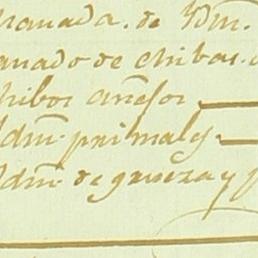 manada. de Ydm.
anado de chibas.
hibos añejos
Ydm. primales
Ydm. de grueza y